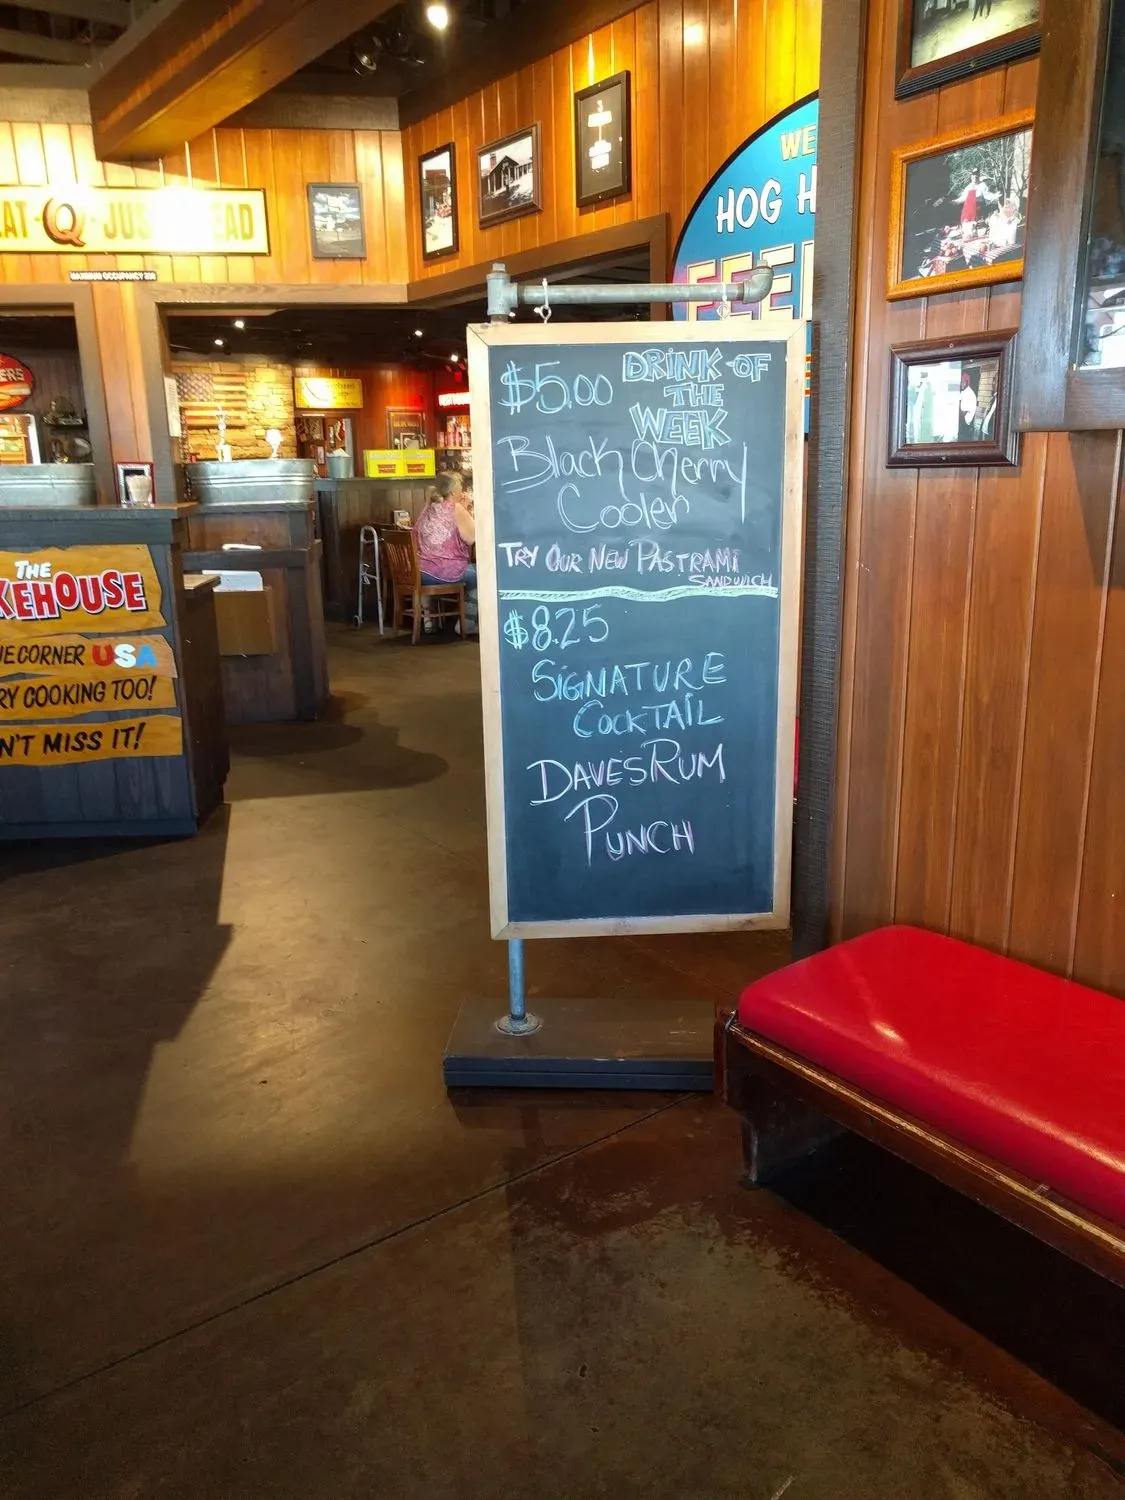 EAT Q JUS EAD
MAXIMUM OCCUPANCY
WE
HOG H
FEE
ERS
$5.00 DRINK OF
THE
WEEK
Black Cherry
Cooler
TRY OUR NEW PASTRAMI
SANDWICH
$8.25
SIGNATURE
COCKTAIL
DAVES RUM
PUNCH
THE
KEHOUSE
UE CORNER USA
RY COOKING TOO!
N'T MISS IT!